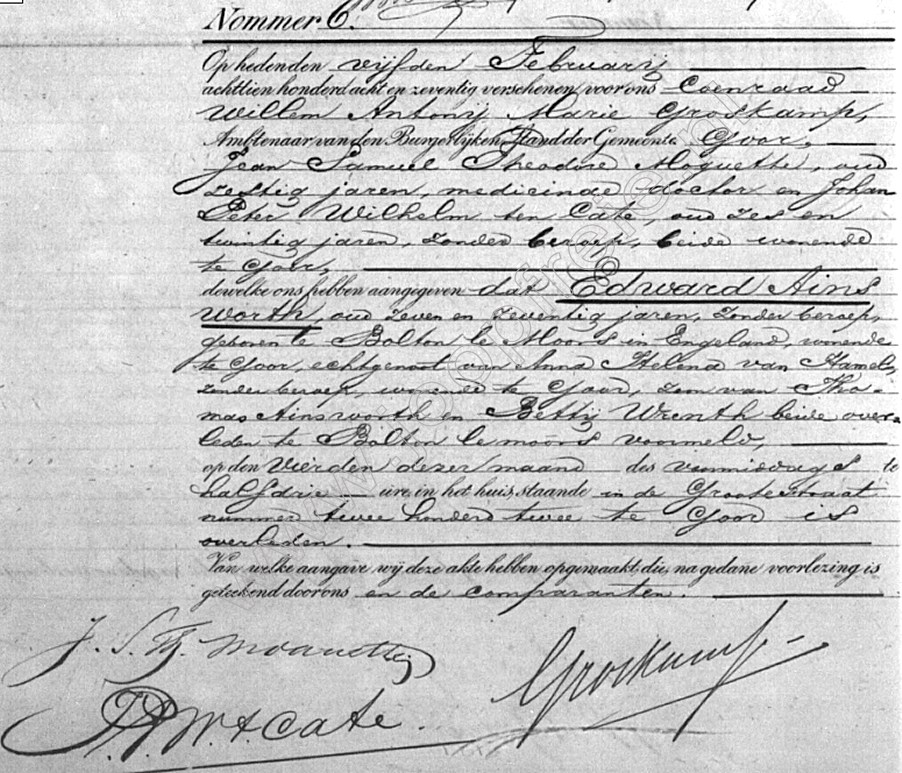 Nommer 6.
Op heden den vijfden Februarij
achttien honderd acht en zeventig verschenen voor ons Coenraad
Willem Antonij Marie Groskamp,
Ambtenaar van den Burgerlijken Stand der Gemeente Goor,
Jean Samuel Theodore Moquette, oud
zestig jaren, medicinae doctor en Johan
Peter Wilhelm ten Cate, oud zes en
twintig jaren, zonder beroep, beide wonende
te Goor,
dewelke ons hebben aangegeven dat Edward Ains
worth, oud zeven en zeventig jaren, zonder beroep,
geboren te Bolton le Moors in Engeland, wonende
te Goor, echtgenoot van Anna Helena van Hamel,
zonder beroep, wonende te Goor, zoon van Tho-
mas Ainsworth en Betty Wrenth beide over-
leden te Bolton le moors voormeld,
op den Vierden dezer maand des voormiddags te
half drie ure, in het huis staande in de Grootestraat
nummer twee honderd twee te Goor is
overleden.
Van welke aangave wij deze akte hebben opgemaakt die, na gedane voorlezing is
geteekend door ons en de comparanten.
J. S. Th. Moquette
Groskamp
J. P. W. t. Cate.